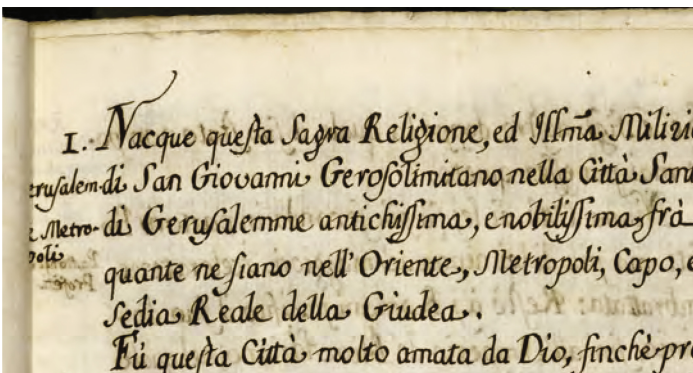 1. Nacque questa Sagra Religione, ed Illma Milizi
erusalem di San Giovanni Gerosolimitano nella Città San
e Metro- di Gerusalemme antichissima, e nobilissima frà
poli
quante ne siano nell' Oriente, Metropoli, Capo, e
Sedia Reale della Giudea.
Fù questa Città molto amata da Dio, finchè pr